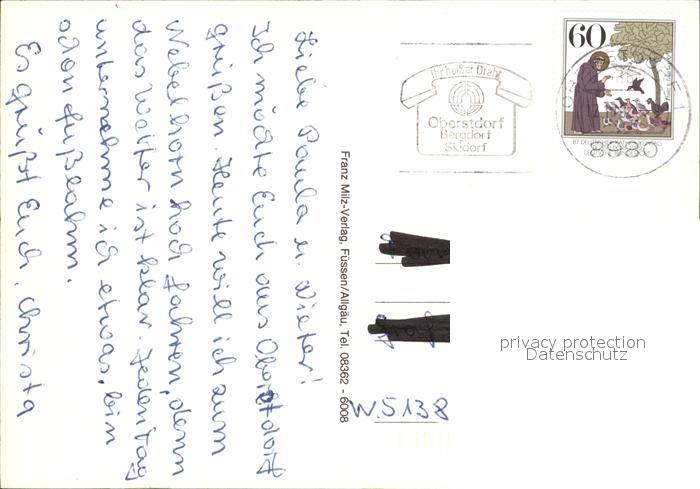 Liebe Paula u. Dieter!
Ich möchte Euch aus Oberstdorf
grüßen. Heute will ich zum
Nebelhorn hoch fahren, denn
das Wetter ist klar. Jeden Tag
unternehme ich etwas, bin
schon fußlahm.
Es grüßt Euch, Christa
Franz Milz-Verlag, Füssen/Allgäu, Tel. 08362 - 6008
Ihr heißer Draht
Oberstdorf
Bergdorf
Skidorf
60
8980
W. 5138
privacy protection
Datenschutz